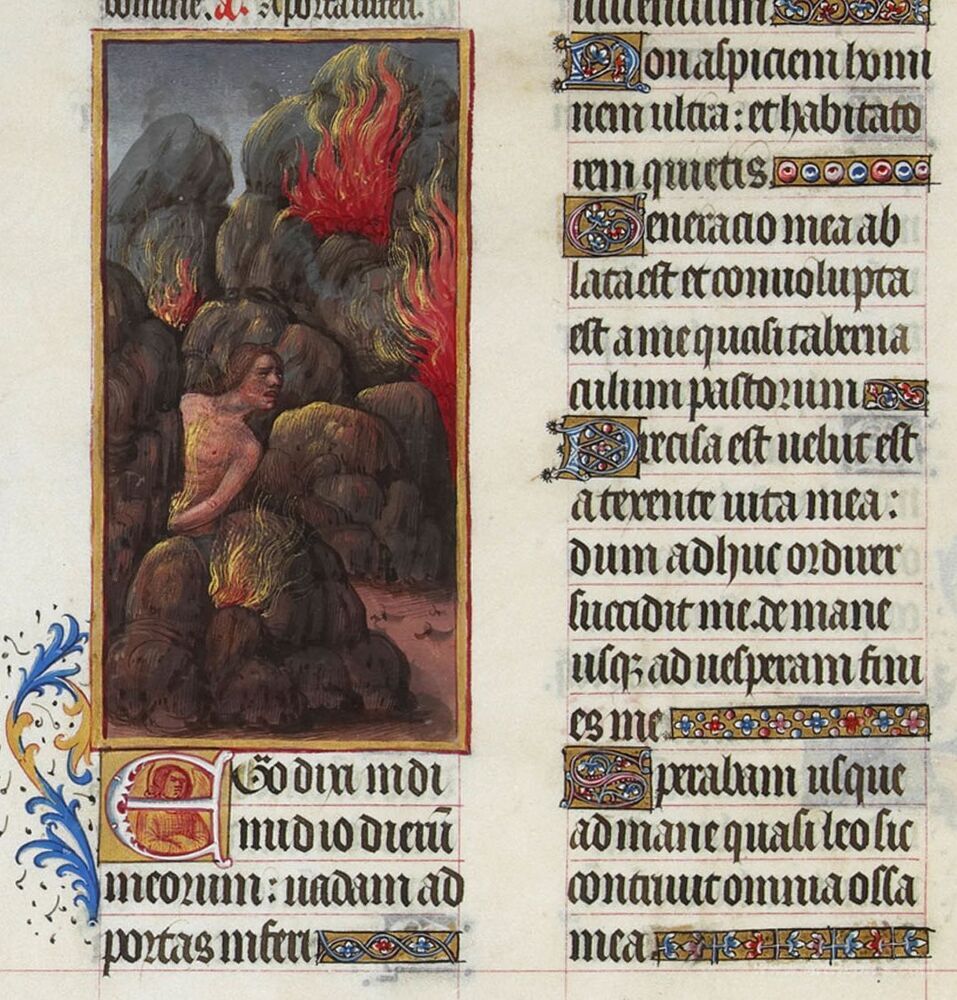 domine. a. A porta inferi.
Ego dixi in di
midio dierū
meorum: uadam ad
portas inferi
uiuentium.
Non aspiciem homi
nem ultra: et habitato
rem quietis.
Generacio mea ab
lata est et conuolupta
est a me quasi taberna
culum pastorum
Precisa est uelut est
a texente uita mea:
dum adhuc ordirer
succidit me. de mane
usqꝫ ad uesperam fini
es me.
Sperabam usque
ad mane quasi leo sic
contriuit omnia ossa
mea